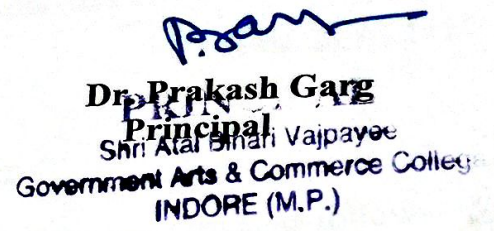 Dr. Prakash Garg
PRINCIPAL
Principal
Shri Atal Bihari Vajpayee
Government Arts & Commerce College
INDORE (M.P.)